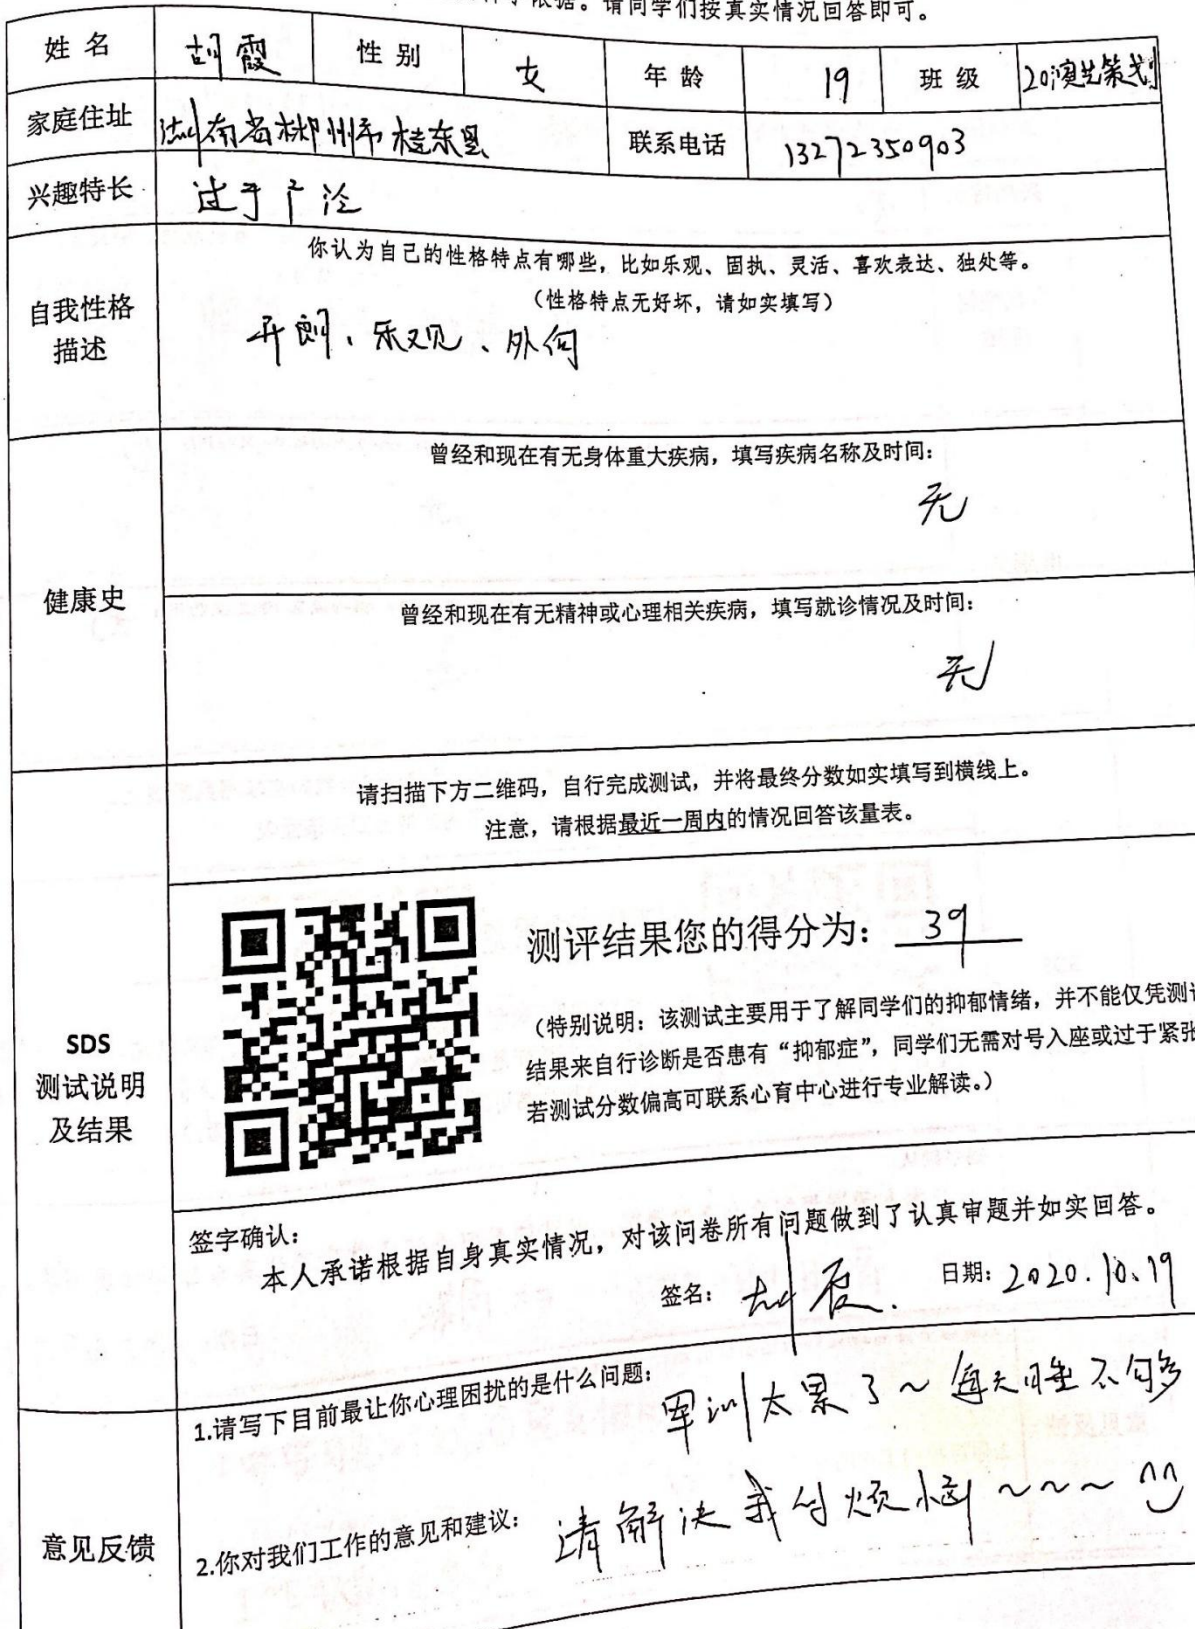 依据。请同学们按真实情况回答即可。
姓 名 胡霞 性 别 女 年 龄 19 班 级 20演艺策划
家庭住址 湖南省郴州市桂东县 联系电话 13272350903
兴趣特长 过于广泛
自我性格描述
你认为自己的性格特点有哪些，比如乐观、固执、灵活、喜欢表达、独处等。
（性格特点无好坏，请如实填写）
开朗、乐观、外向
健康史
曾经和现在有无身体重大疾病，填写疾病名称及时间：
无
曾经和现在有无精神或心理相关疾病，填写就诊情况及时间：
无
SDS
测试说明
及结果
请扫描下方二维码，自行完成测试，并将最终分数如实填写到横线上。
注意，请根据最近一周内的情况回答该量表。
测评结果您的得分为：39
（特别说明：该测试主要用于了解同学们的抑郁情绪，并不能仅凭测
结果来自行诊断是否患有“抑郁症”，同学们无需对号入座或过于紧张
若测试分数偏高可联系心育中心进行专业解读。）
签字确认：
本人承诺根据自身真实情况，对该问卷所有问题做到了认真审题并如实回答。
签名：胡霞. 日期：2020.10.19
意见反馈
1.请写下目前最让你心理困扰的是什么问题：军训太累了~每天睡不够
2.你对我们工作的意见和建议：请解决我的烦恼~~~